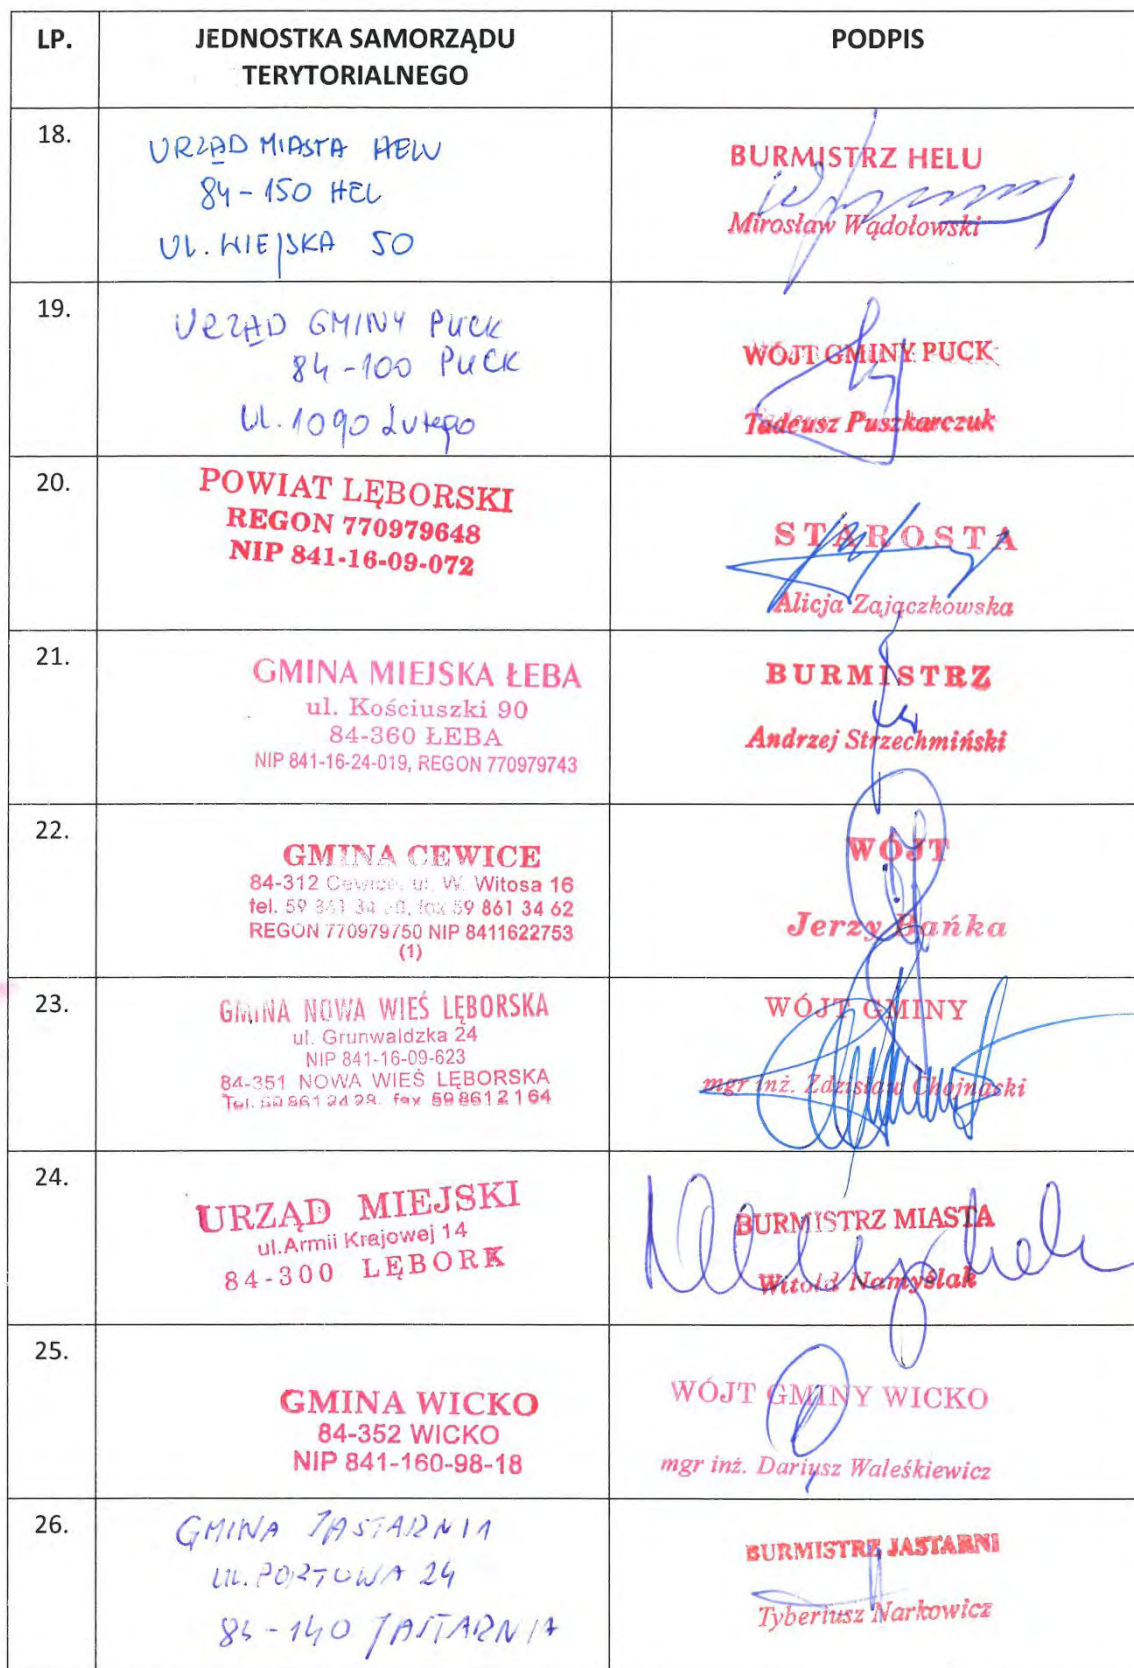 LP.
JEDNOSTKA SAMORZĄDU
TERYTORIALNEGO
PODPIS
18.
URZĄD MIASTA HELU
84-150 HEL
UL. WIEJSKA 50
BURMISTRZ HELU
Mirosław Wądołowski
19.
URZĄD GMINY PUCK
84-100 PUCK
Ul. 10go Lutego
WÓJT GMINY PUCK
Tadeusz Puszkarczuk
20.
POWIAT LĘBORSKI
REGON 770979648
NIP 841-16-09-072
STAROSTA
Alicja Zajączkowska
21.
GMINA MIEJSKA ŁEBA
ul. Kościuszki 90
84-360 ŁEBA
NIP 841-16-24-019, REGON 770979743
BURMISTRZ
Andrzej Strzechmiński
22.
GMINA CEWICE
84-312 Cewice, ul. W. Witosa 16
tel. 59 861 34 fax 59 861 34 62
REGON 770979750 NIP 8411622753
(1)
WÓJT
Jerzy Bańka
23.
GMINA NOWA WIEŚ LĘBORSKA
ul. Grunwaldzka 24
NIP 841-16-09-623
84-351 NOWA WIEŚ LĘBORSKA
Tel. 59 8612428, fax 59 8612164
WÓJT GMINY
mgr inż. Zdzisław Chojnacki
24.
URZĄD MIEJSKI
ul.Armii Krajowej 14
84-300 LĘBORK
BURMISTRZ MIASTA
Witold Namyślak
25.
GMINA WICKO
84-352 WICKO
NIP 841-160-98-18
WÓJT GMINY WICKO
mgr inż. Dariusz Waleśkiewicz
26.
GMINA JASTARNIA
UL. PORTOWA 24
84-140 JASTARNIA
BURMISTRZ JASTARNI
Tyberiusz Narkowicz